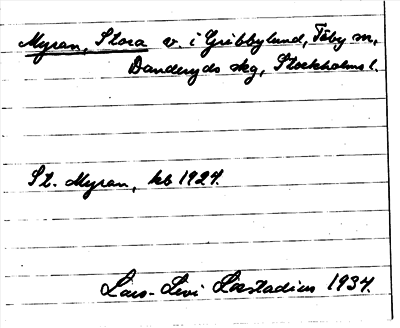 Myran, Stora v. i Gribbylund, Täby sn,
Danderyds skg, Stockholms l.
St. Myran, kb 1924.
Lars-Levi Læstadius 1934.